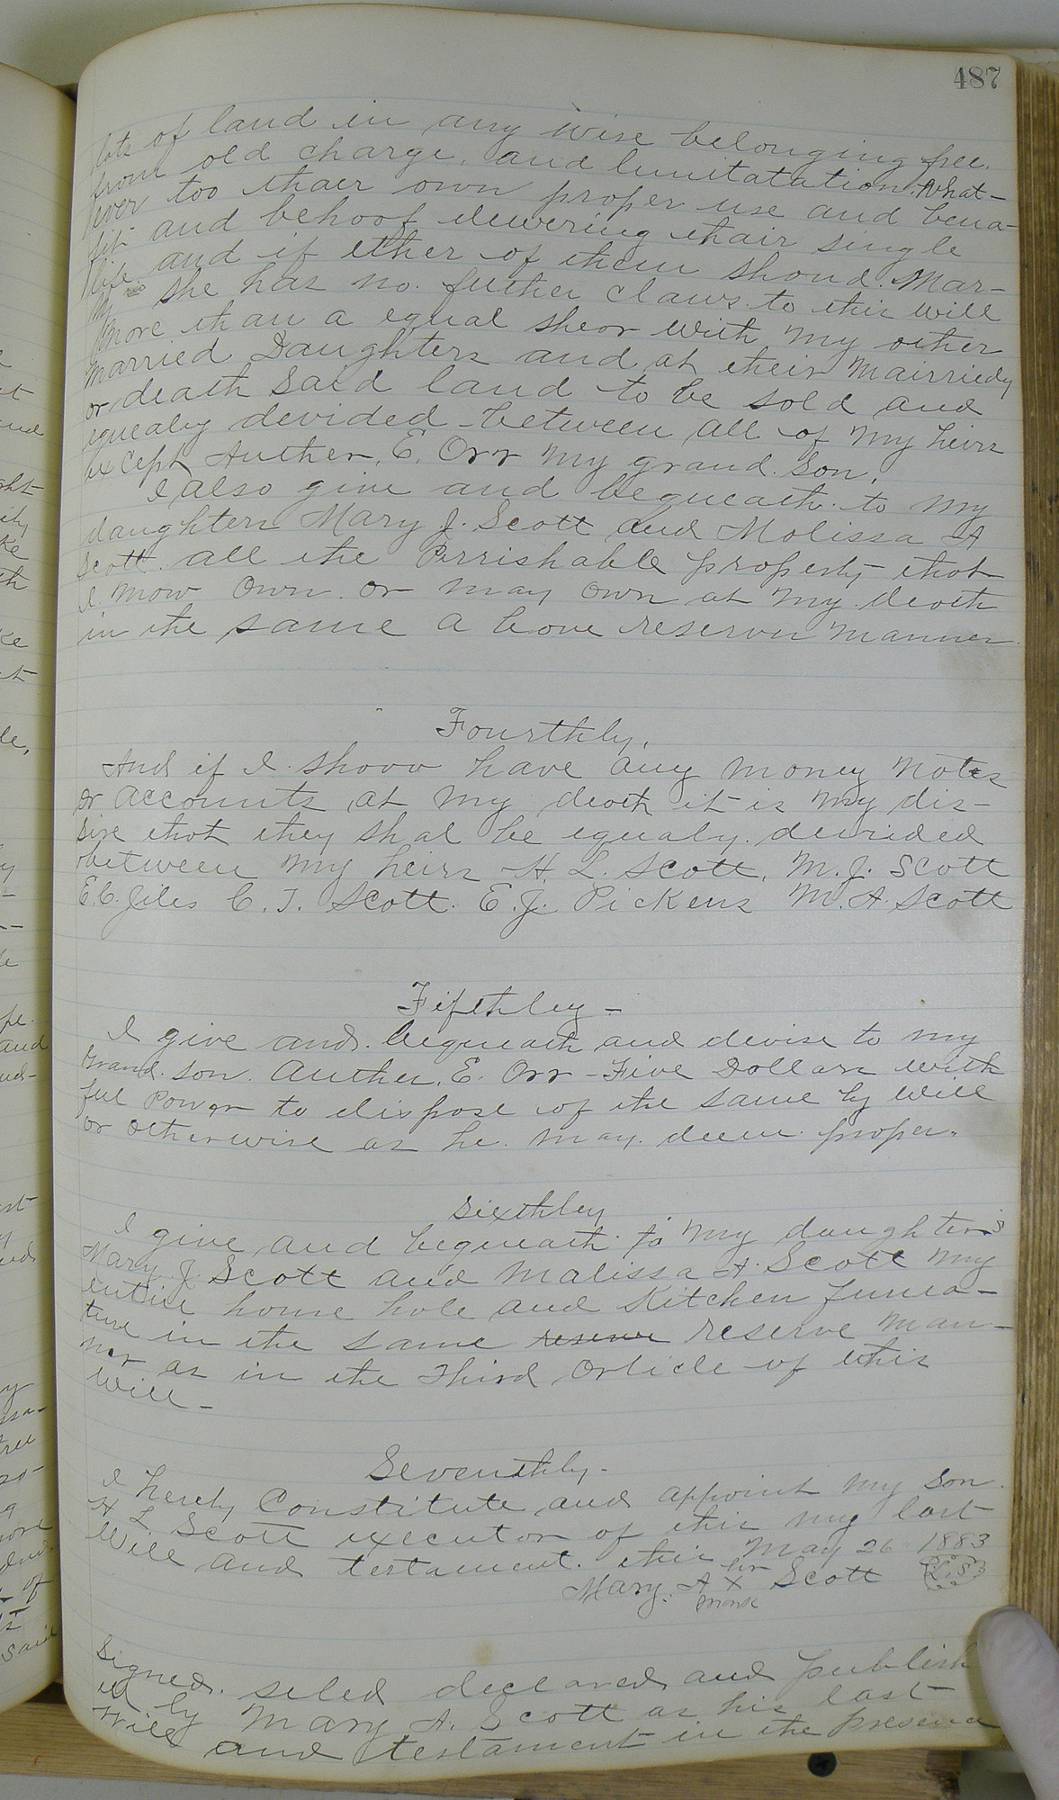 487
lots of land in any wise belonging free.
from old charge. and limitatation. What-
ever too thaer own proper use and bena-
fit and behoof dewering thair single
life and if ether of them shoud. Mar-
ry she has no. further claws to this will
more than a equal shear with my other
married Daughters and at their Mairriedy
or death Said land to be sold and
equealy devided between all of my heirs
except Auther. E. Orr my grand. Son.
I also give and bequeath to my
daughters Mary J. Scott and Molissa A
Scott. all the Perrishable property that
I mow own. or may own at my. death
in the same a bove reserve manner.
Fourthly.
And if I. shoow have any money notes
or accounts at my death it is my dis-
sire that they shal be equaly. devided
between my heirs H. L. Scott. M. J. Scott
E. C. Jiles C. T. Scott. E. J. Pickens M. A. Scott
Fifthley -
I give and. bequeath and devise to my
Grand. son. Auther. E. Orr - Five Dollars with
ful Power to dispose of the same by will
or otherwise as he. may. deem. proper.
Sixthley
I give and bequeath to my daughters
Mary J. Scott and Malissa A. Scott my
entire house hole and Kitchen Funea-
ture in the same reserve reserve man-
ner as in the Third Orticle of this
Will -
Seventhly.
I hereby Constitute and appoint my Son
H L. Scott executor of this my last
Will and testament. this May 26 1883
her
Mary. A X Scott L.S
mark
Signed. seled declared and publish
ed by Mary A. Scott as his last
Will and testament in the presence